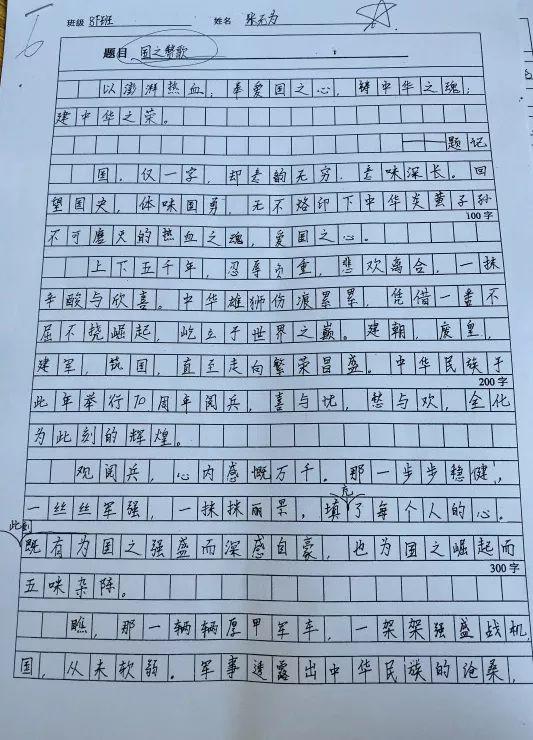 班级 87班 姓名 张无为
题目 国之赞歌
以澎湃热血,奉爱国之心,铸中华之魂;
建中华之荣。
——题记
国,仅一字,却意韵无穷,意味深长。回
望国史,体味国勇,无不烙印下中华炎黄子孙
100字
不可磨灭的热血之魂,爱国之心。
上下五千年,忍辱负重,悲欢离合,一抹
辛酸与欣喜。中华雄狮伤痕累累,凭借一番不
屈不挠崛起,屹立于世界之巅。建朝,废皇,
建军,筑国,直至走向繁荣昌盛。中华民族于
200字
此年举行70周年阅兵,喜与忧,愁与欢,全化
为此刻的辉煌。
观阅兵,心内感慨万千。那一步步稳健,
一丝丝军强,一抹抹丽景,填充了每个人的心。
此刻
既有为国之强盛而深感自豪,也为国之崛起而
300字
五味杂陈。
瞧,那一辆辆厚甲军车,一架架强盛战机,
国,从未软弱。军事透露出中华民族的沧桑,